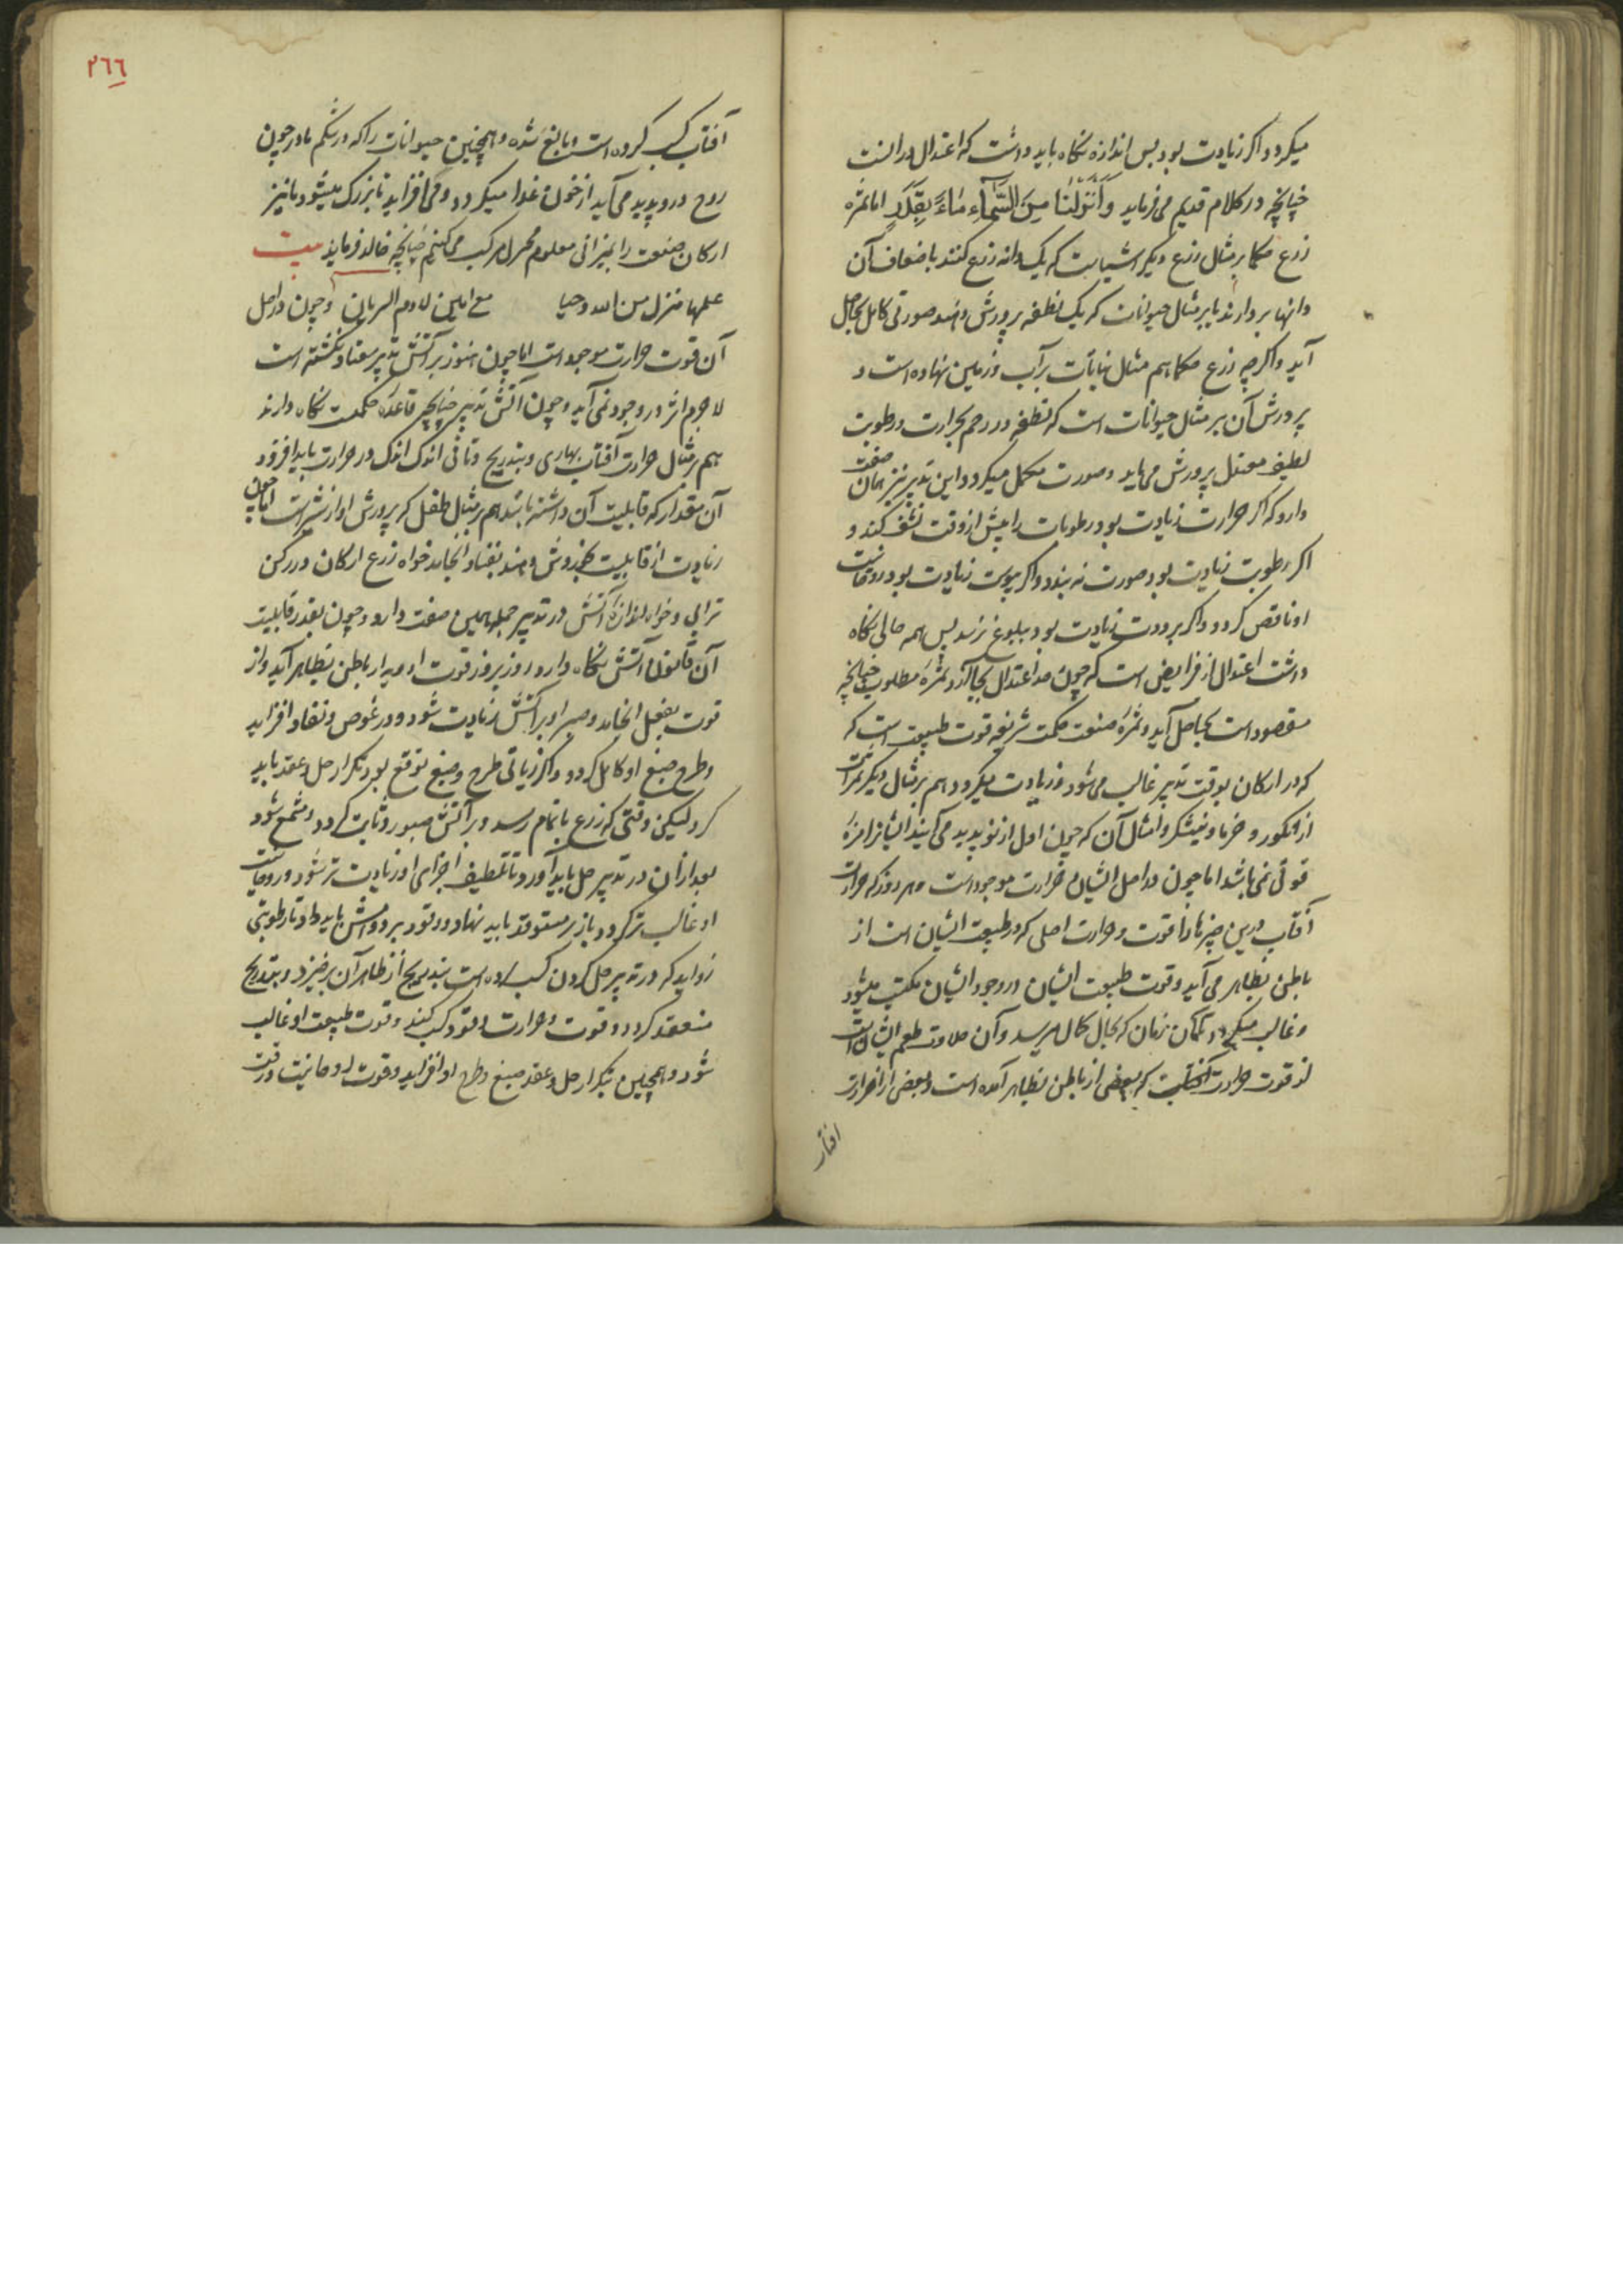 میکردد واکر زیادت بود پس اندازه نکاه باید داشت که اعتدال در آنست
چنانچه در کلام قدیم می فرماید وَاَنْزَلْنَا مِنَ السَّمَآءِ مَاءً بِقَدَرٍ اما ثمره
زرع حکما بر مثال زرع دیکر اشیاست که یک دانه زرع کنند باضعاف آن
دانها بردارند یا بر مثال حیوانات که یک نطفه پرورش دهند صورتی کامل بحاصل
آید واکرچه زرع حکما هم مثال نباتات بر آب وزمین نهاده است و
پرورش آن بر مثال حیوانات است که نطفه در رحم بحرارت ورطوبت
لطیف معتدل پرورش می یابد وصورت مکمل میکردد واین تدبیر نیز همان صفت
دارد که اکر حرارت زیادت بود رطوبات را پیش از وقت نشف کند و
اکر رطوبت زیادت بود صورت نه بندد واکر یبوست زیادت بود روحانیت
او ناقص کردد واکر برودت زیادت بود ببلوغ نرسد پس همه حالی نکاه
داشت اعتدال از فرایض است که چون حد اعتدال بجا آرد ثمرهٔ مطلوب چنانچه
مقصود است بحاصل آید وثمرهٔ صنعت حکمت شریفه قوت طبیعت است که
که در ارکان بوقت تدبیر غالب می شود وزیادت میکردد هم بر مثال دیکر ثمرات
از انکور وخرما ونیشکر وامثال آن که چون اول از نو پدید می آیند ایشانرا مزهٔ
قوتی نمی باشد اما چون در اصل ایشان حرارت موجود است وهر روز که حرارت
آفتاب درین چیزها قوت وحرارت اصلی که در طبیعت ایشان است از
باطن بظاهر می آید وقوت طبیعت ایشان در وجود ایشان مکتسب میشود
وغالب میکردد تا آن زمان که بحال کمال میرسد وآن حلاوت طعم ایشان است
از قوت حرارت که بعضی از باطن بظاهر آمده است وبعضی از حرارت
افتاب
٢٦٦
آفتاب کسب کرده است وبالغ شده وهمچنین حیوانات را که در شکم مادر چون
روح در وپدید می آید از خون غذا میکردد ومی افزاید تا بزرک میشود ما نیز
ارکان صنعت را بمیزانی معلوم مرکب می کنیم چنانچه خالد فرماید بیت
علمها منزل من الله وحیا مع امین لادم السریانی وچون در اصل
آن قوت حرارت موجود است اما چون هنوز بر آتش تدبیر معتاد نکشته است
لاجرم اثر در وجود نمی آید وچون آتش تدبیر چنانچه قاعده حکمت نکاه دارند
هم بر مثال حرارت آفتاب بهاری وبتدریج وتأنی اندک اندک در حرارت باید افزود
آن مقدار که قابلیت آن داشته باشد هم بر مثال طفل که پرورش او از شیر است اما چون
زیادت از قابلیت پرورش دهند بفساد انجامد خواه زرع ارکان در رکن
ترابی وخواه اندازهٔ آتش در تدبیر جمله همین صفت دارد وچون بقدر قابلیت
آن قانون آتش نکاه دارد روز بروز قوت او پدید از باطن بظاهر آید واز
قوت بفعل انجامد وصبر او بر آتش زیادت شود ودر غوص ونفاد افزاید
وطرح صبغ او کامل کردد واکر زیاتی طرح وصبغ توقع بود تکرار حل وعقد باید
کرد لیکن وقتی که زرع باتمام رسد وبر آتش صبور وثابت کردد ومشمع شود
بعد از آن در تدبیر حل باید آورد تا تلطیف اجزای او زیادت تر شود وروحانیت
او غالب تر کردد باز بر مستوقد باید نهاد ووقود بر دوامش باید داد تا رطوبتی
زواید که در تدبیر حل کردن کسب کرده است بتدریج از ظاهر آن برخیزد وبتدریج
منعقد کردد وقوت وحرارت وقود کسب کند وقوت طبیعت او غالب
شود وهمچنین بتکرار حل وعقد صبغ وطرح او افزاید وقوت روحانیت ورقت